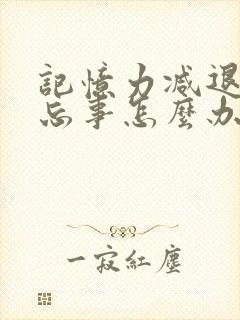 記憶力减退
忘事怎麽办
一寂紅塵